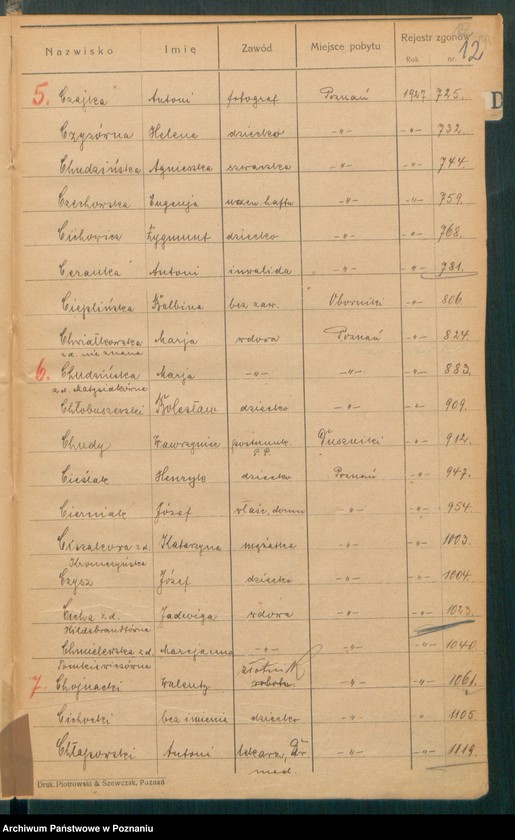 12
Nazwisko Imię Zawód Miejsce pobytu Rejestr zgonów
Rok nr.
5. Czajka Antoni fotograf Poznań 1927 725.
Czyżówna Helena dziecko -"- -"- 732.
Chudzińska Agnieszka szwaczka -"- -"- 744.
Czechowska Eugenja haftu -"- -"- 759.
Cichowicz Zygmunt dziecko -"- -"- 768.
Antoni inwalida -"- -"- 781.
Cieplińska Balbina bez zaw. Oborniki -"- 806.
Chwiałkowska Marja wdowa Poznań -"- 824.
zd. nie znana
6. Chudzińska Marja -"- -"- -"- 883.
z d. Matysiakówna
Chłobuszewski Bolesław dziecko -"- -"- 909.
Chudy Wawrzyniec posterunk. Duszniki -"- 912.
P.P.
Cieślak Henryk dziecko Poznań -"- 947.
Cierniak Józef właśc. domu -"- -"- 954.
zd. Katarzyna mężatka -"- -"- 1003.
Czysz Józef dziecko -"- -"- 1004.
Cicha z d. Jadwiga wdowa -"- -"- 1023.
Hildebrandtówna
Chmielewska zd. Marcjanna -"- -"- -"- 1040.
złotnik
7. Chojnacki Walenty robotn. -"- -"- 1061.
Cichocki bez imienia dziecko -"- " 1105
Chłapowski Antoni lekarz, Dr -"- -"- 1119.
med.
Druk. Piotrowski & Szewczak, Poznań
Archiwum Państwowe w Poznaniu